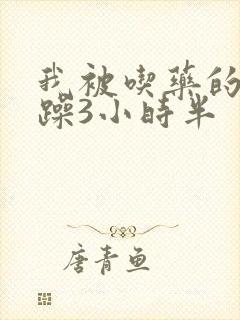 我被喫藥的
躁3小時半
唐青魚